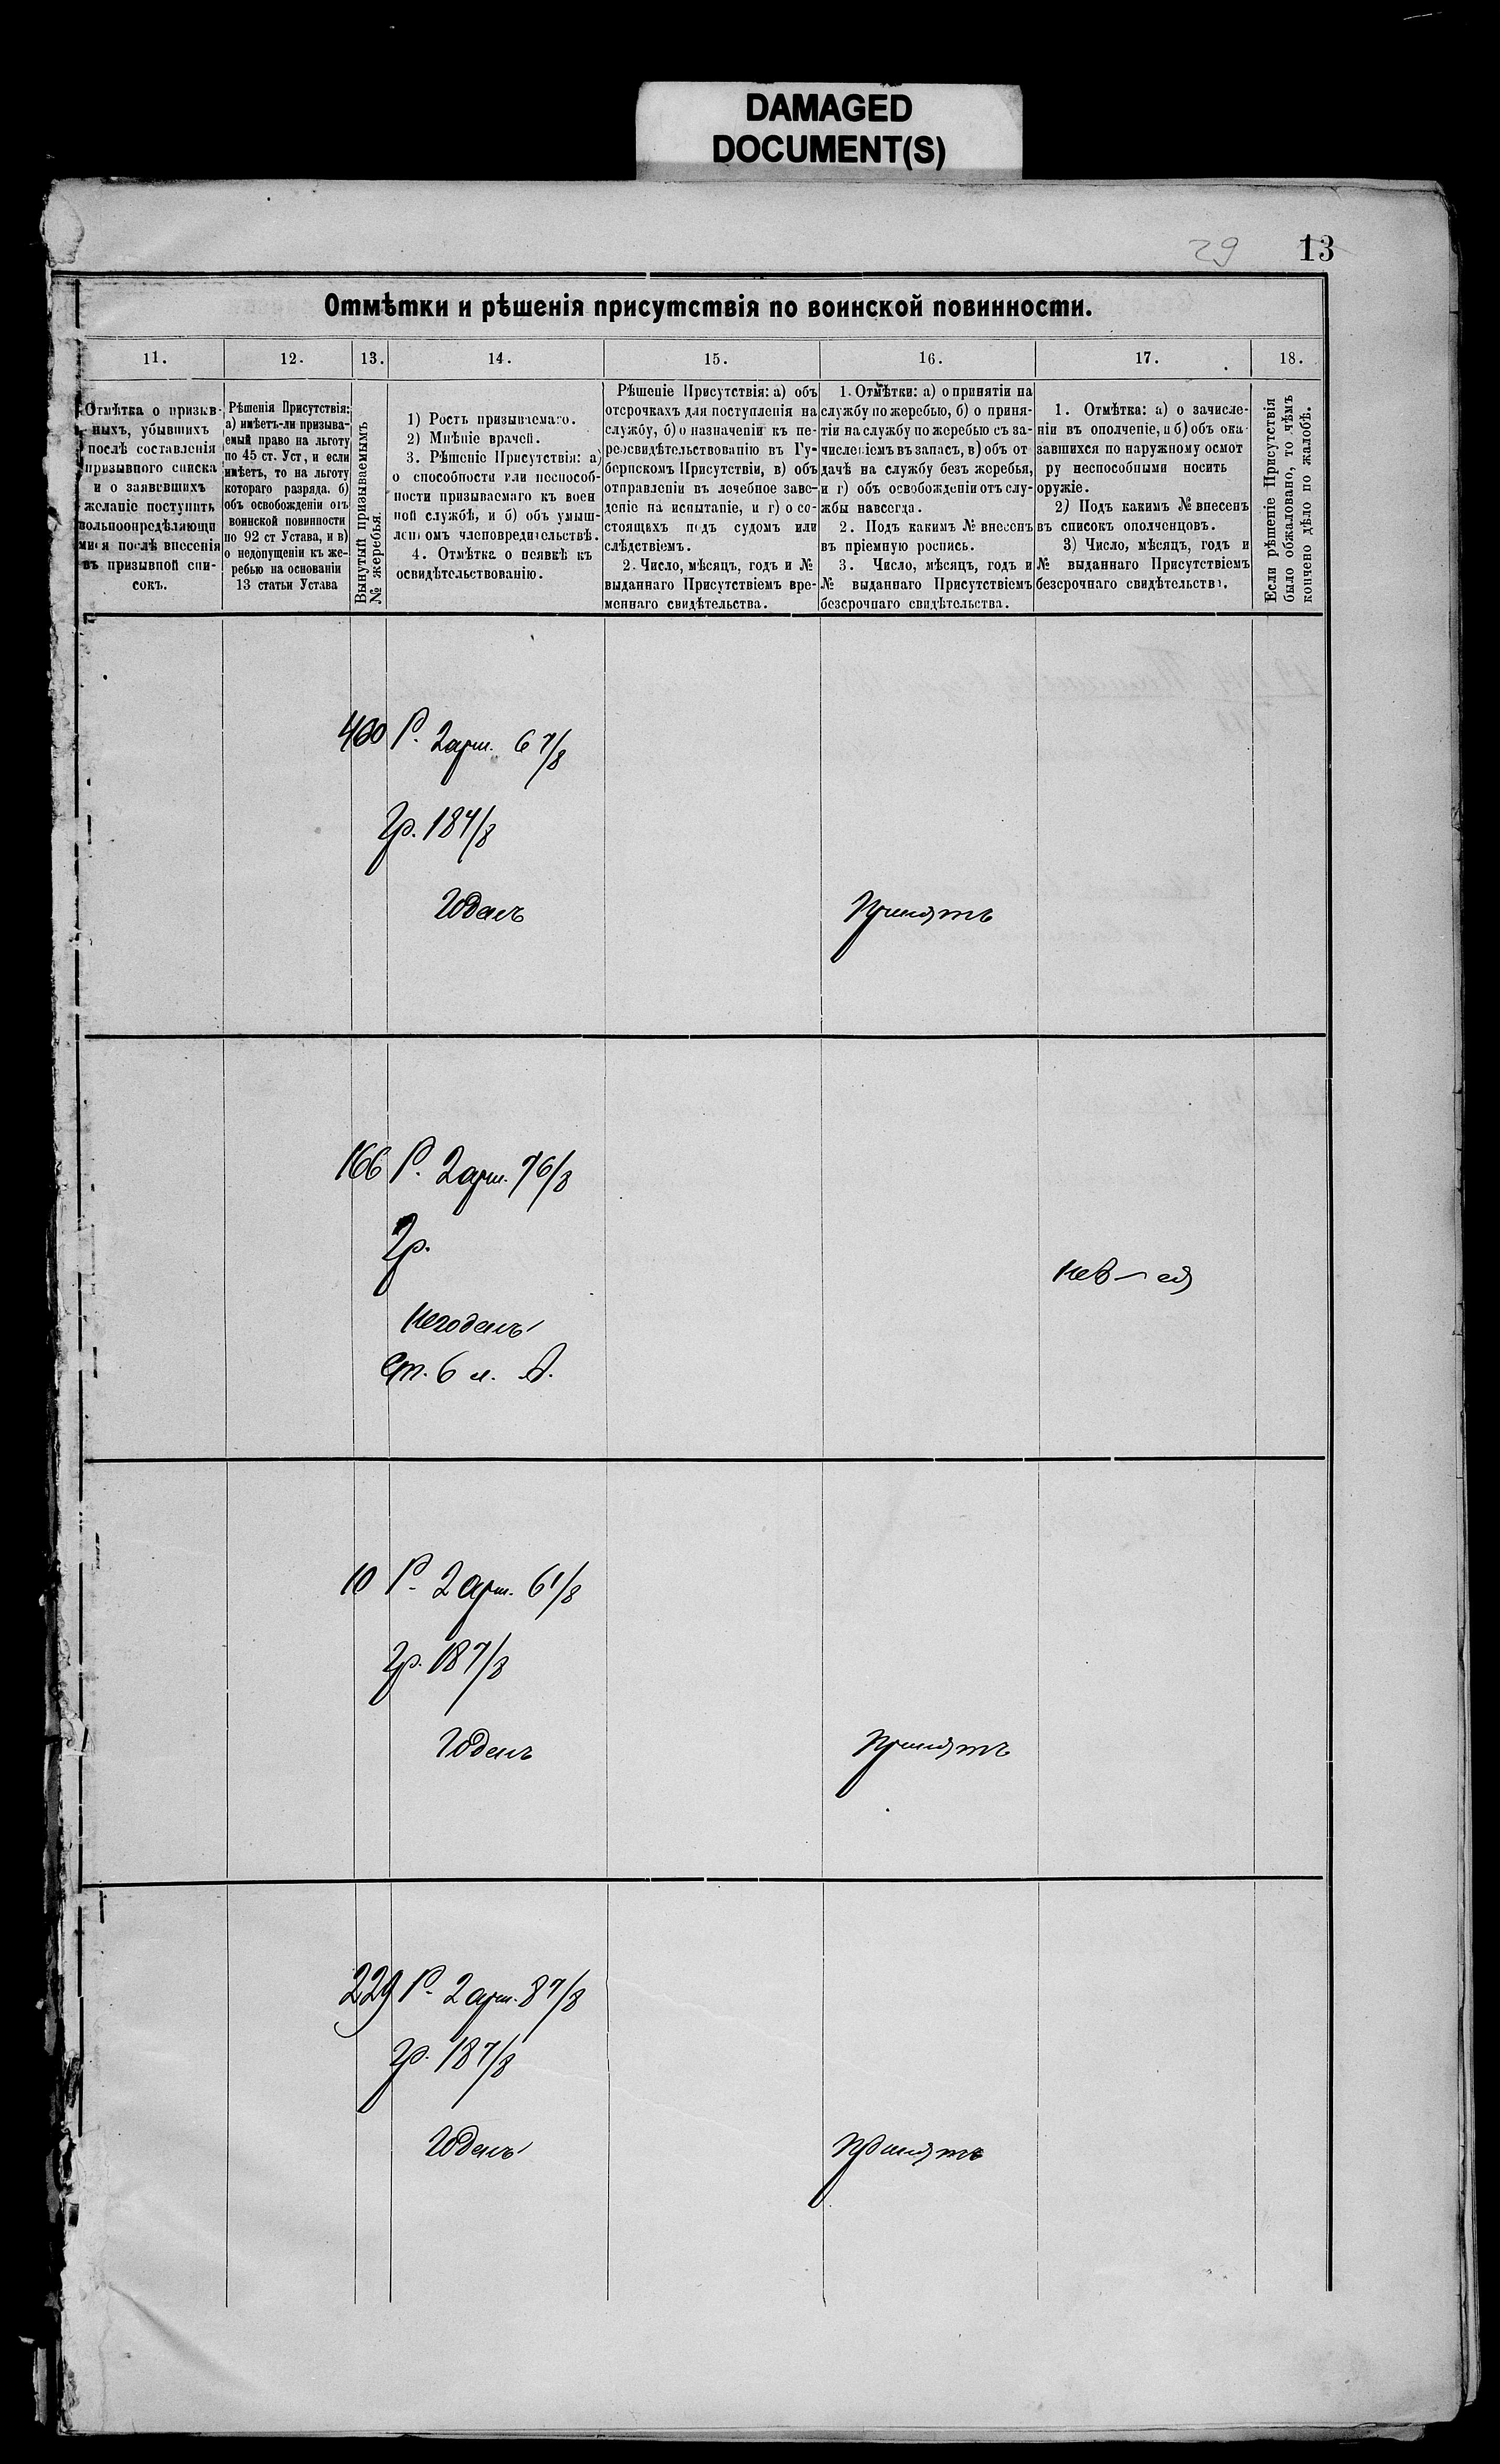 DAMAGED
DOCUMENT(S)
29 13
Отмѣтки и рѣшенія присутствія по воинской повинности.
11. 12. 13. 14. 15. 16. 17. 18.
Отмѣтка о призыв-
ныхъ, убывшихъ
послѣ составленія
призывного списка
и о заявевшихъ
желаніе поступить
вольноопредѣляющи
мися послѣ внесенія
въ призывной спи-
сокъ.
Рѣшенія Присутствія:
а) имѣетъ-ли призыва-
емый право на льготу
по 45 ст. Уст, и если
имѣетъ, то на льготу
котораго разряда. б)
объ освобожденіи отъ
воинской повинности
по 92 ст Устава, и в)
о недопущеніи къ же-
ребью на основаніи
13 статьи Устава
Вынутый призываемымъ
№ жеребья.
1) Ростъ призываемаго.
2) Мнѣніе врачей.
3. Рѣшеніе Присутствія: а)
о способности или неспособ-
ности призываемаго къ воен
ной службѣ, и б) объ умыш-
ленномъ членовредительствѣ.
4. Отмѣтка о неявкѣ къ
освидѣтельствованію.
Рѣшеніе Присутствія: а) объ
отсрочкахъ для поступленія на
службу, б) о назначеніи къ пе-
реосвидѣтельствованію въ Гу-
бернскомъ Присутствіи, в) объ
отправленіи въ лечебное заве-
деніе на испытаніе, и г) о со-
стоящихъ подъ судомъ или
слѣдствіемъ.
2. Число, мѣсяцъ, годъ и №
выданнаго Присутствіемъ вре-
меннаго свидѣтельства.
1. Отмѣтки: а) о принятіи на
службу по жеребью, б) о приня-
тіи на службу по жеребью съ за-
численіемъ въ запасъ, в) объ от
дачѣ на службу безъ жеребья,
и г) объ освобожденіи отъ слу-
жбы навсегда.
2. Подъ какимъ № внесенъ
въ пріемную роспись.
3. Число, мѣсяцъ, годъ и
№ выданнаго Присутствіемъ
безсрочнаго свидѣтельства.
1. Отмѣтка: а) о зачисле-
ніи въ ополченіе, и б) объ ока
завшихся по наружному осмот
ру неспособными носить
оружіе.
2) Подъ какимъ № внесенъ
въ списокъ ополченцовъ.
3) Число, мѣсяцъ, годъ и
№ выданнаго Присутствіемъ
безсрочнаго свидѣтельства.
Если рѣшеніе Присутствія
было обжаловано, то чѣмъ
кончено дѣло по жалобѣ.
460 Р. 2 арш. 6 7/8
Гр. 18 4/8
Годенъ Принятъ
166 Р. 2 арш. 7 6/8
Гр.
Негоденъ
Ст. 6 л. А.
10 Р. 2 арш. 6 1/8
Гр. 18 7/8
Годенъ Принятъ
229 Р. 2 арш. 8 7/8
Гр. 18 7/8
Годенъ Принятъ